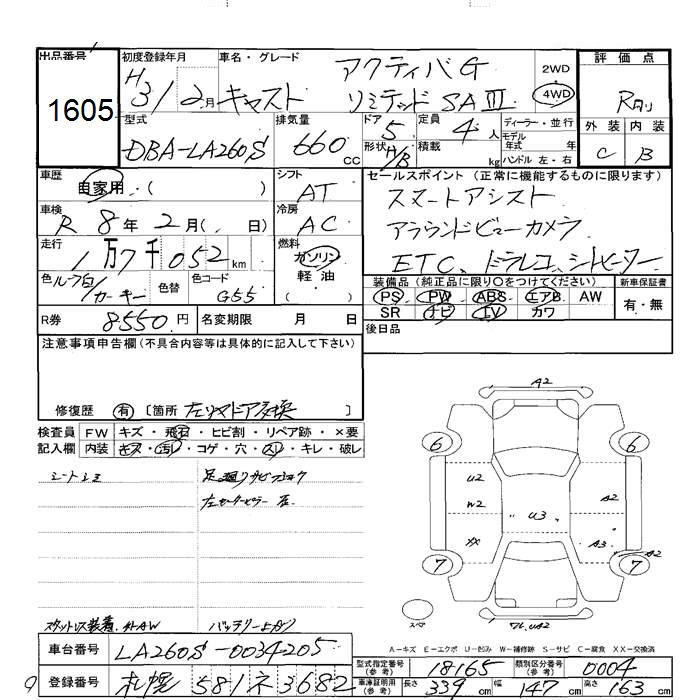 出品番号
1605
初度登録年月
H31/2月
車名・グレード
キャスト アクティバG
リミテッド SAⅢ
2WD
4WD
評価点
R
外装 内装
C B
型式
DBA-LA260S
排気量
660cc
ドア 5
形状 H/B
定員 4人
積載 kg
ディーラー・並行
モデル年式 年
ハンドル 左・右
車歴
自家用・( )
シフト
AT
車検
R 8年 2月( 日)
冷房
AC
走行
1万7千052km
燃料
ガソリン
軽油
( )
色 ルーフ白/カーキー
色替
色コード
G55
R券 8550円
名変期限 月 日
セールスポイント(正常に機能するものに限ります)
スマートアシスト
アラウンドビューカメラ
ETC、ドラレコ、シートヒーター
装備品(純正品に限り〇をつけてください)
新車保証書
PS PW ABS エアB AW
SR ナビ TV カワ
有・無
後日品
注意事項申告欄(不具合内容等は具体的に記入して下さい)
修復歴 有 〔箇所 左リヤドア交換 〕
検査員 FW キズ・飛石・ヒビ割・リペア跡・×要
記入欄 内装 キズ・汚レ・コゲ・穴・スレ・キレ・破レ
シートシミ
足廻りサビ
左センターピラー
スタッドレス装着
バッテリー上がり
A2
6 6
U2
W2
XX
U3
A2
A3
A2
7 7
スペア
U2
A-キズ E-エクボ U-凹み W-補修跡 S-サビ C-腐食 XX-交換済
車台番号 LA260S-0034205
登録番号 札幌 581 ネ 3682
型式指定番号(参考) 18165
類別区分番号(参考) 0004
車庫証明用(参考) 長さ 339cm 幅 147cm 高さ 163cm
9